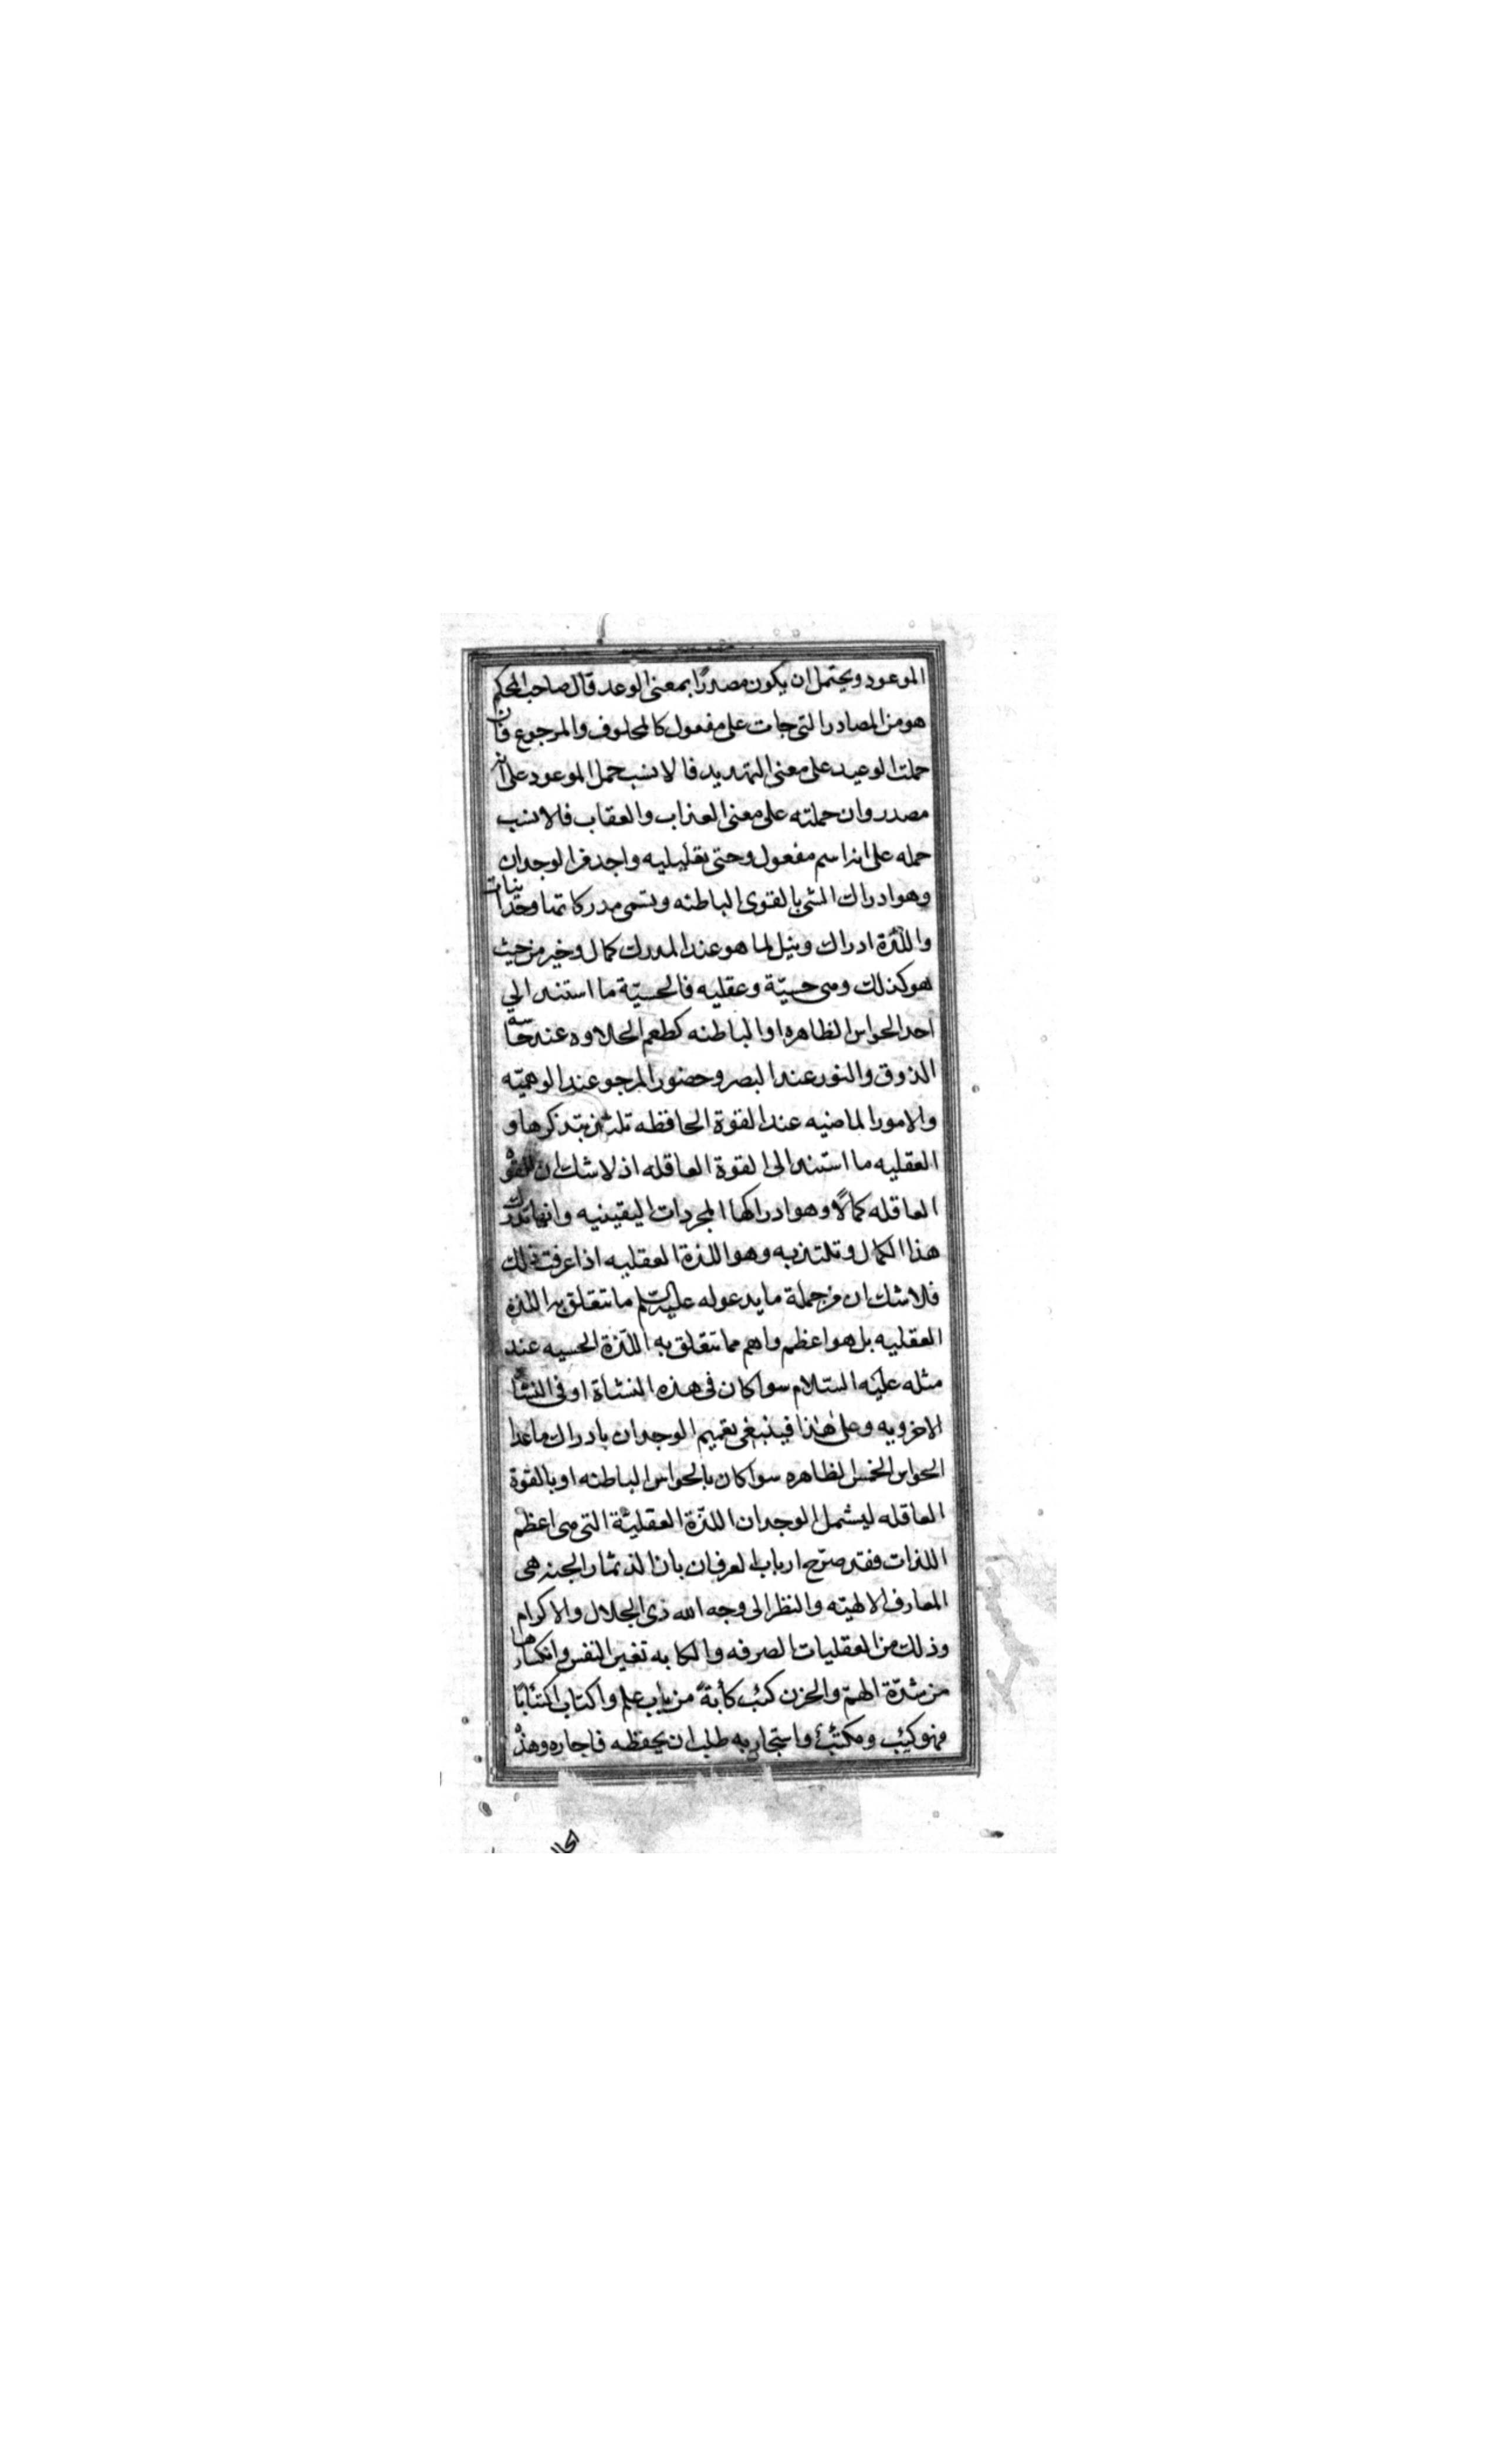 الموعود ويحتمل ان يكون مصدرًا بمعنى الوعد قال صاحب المحكم
هو من المصادر التى جات على مفعول كالمحلوف والمرجوع فان
حملت الوعيد على معنى التهديد فالانسب حمل الموعود على انه
مصدر وان حملته على معنى العذاب والعقاب فالانسب
حمله على انه اسم مفعول وحتى تعليليه واجد من الوجدان
وهو ادراك الشى بالقوى الباطنه وتسمى مدركاتها وجدانيات
واللذة ادراك ونيل لما هو عند المدرك كمال وخير من حيث
هو كذلك وهى حسيّة وعقليه فالحسيّة ما استند الى
احد الحواس الظاهره او الباطنه كطعم الحلاوه عند حاسه
الذوق والنور عند البصر وحضور المرجو عند الوهميّه
والامور الماضيه عند القوة الحافظه تلتذ بتذكرها و
العقليه ما استند الى القوة العاقله اذ لا شك ان للقوة
العاقله كمالًا وهو ادراكها المجردات اليقينيه وانها تدرك
هذا الكمال وتلتذ به وهو اللذة العقليه اذا عرفت ذلك
فلا شك ان من جملة ما يدعو له عليه السلم ما تتعلق به اللذه
العقليه بل هو اعظم واهم مما تتعلق به اللّذة الحسيه عند
مثله عليه السلام سوا كان فى هذه النشاة او فى النشاة
الاخرويه وعلى هذا فينبغى تعميم الوجدان بادراك ما عدا
الحواس الخمس الظاهره سوا كان بالحواس الباطنه او بالقوة
العاقله ليشمل الوجدان اللذّة العقليّة التى هى اعظم
اللذات فقد صرّح ارباب العرفان بان الذ ثمار الجنه هى
المعارف الالهيّه والنظر الى وجه الله ذى الجلال والاكرام
وذلك من العقليات الصرفه والكابه تغير النفس وانكسارها
من شدّة الهمّ والحزن كئب كأبةً من باب علم واكتاب اكتئابًا
فهو كئيب ومكتئب واستجار به طلب ان يحفظه فاجاره وهذه